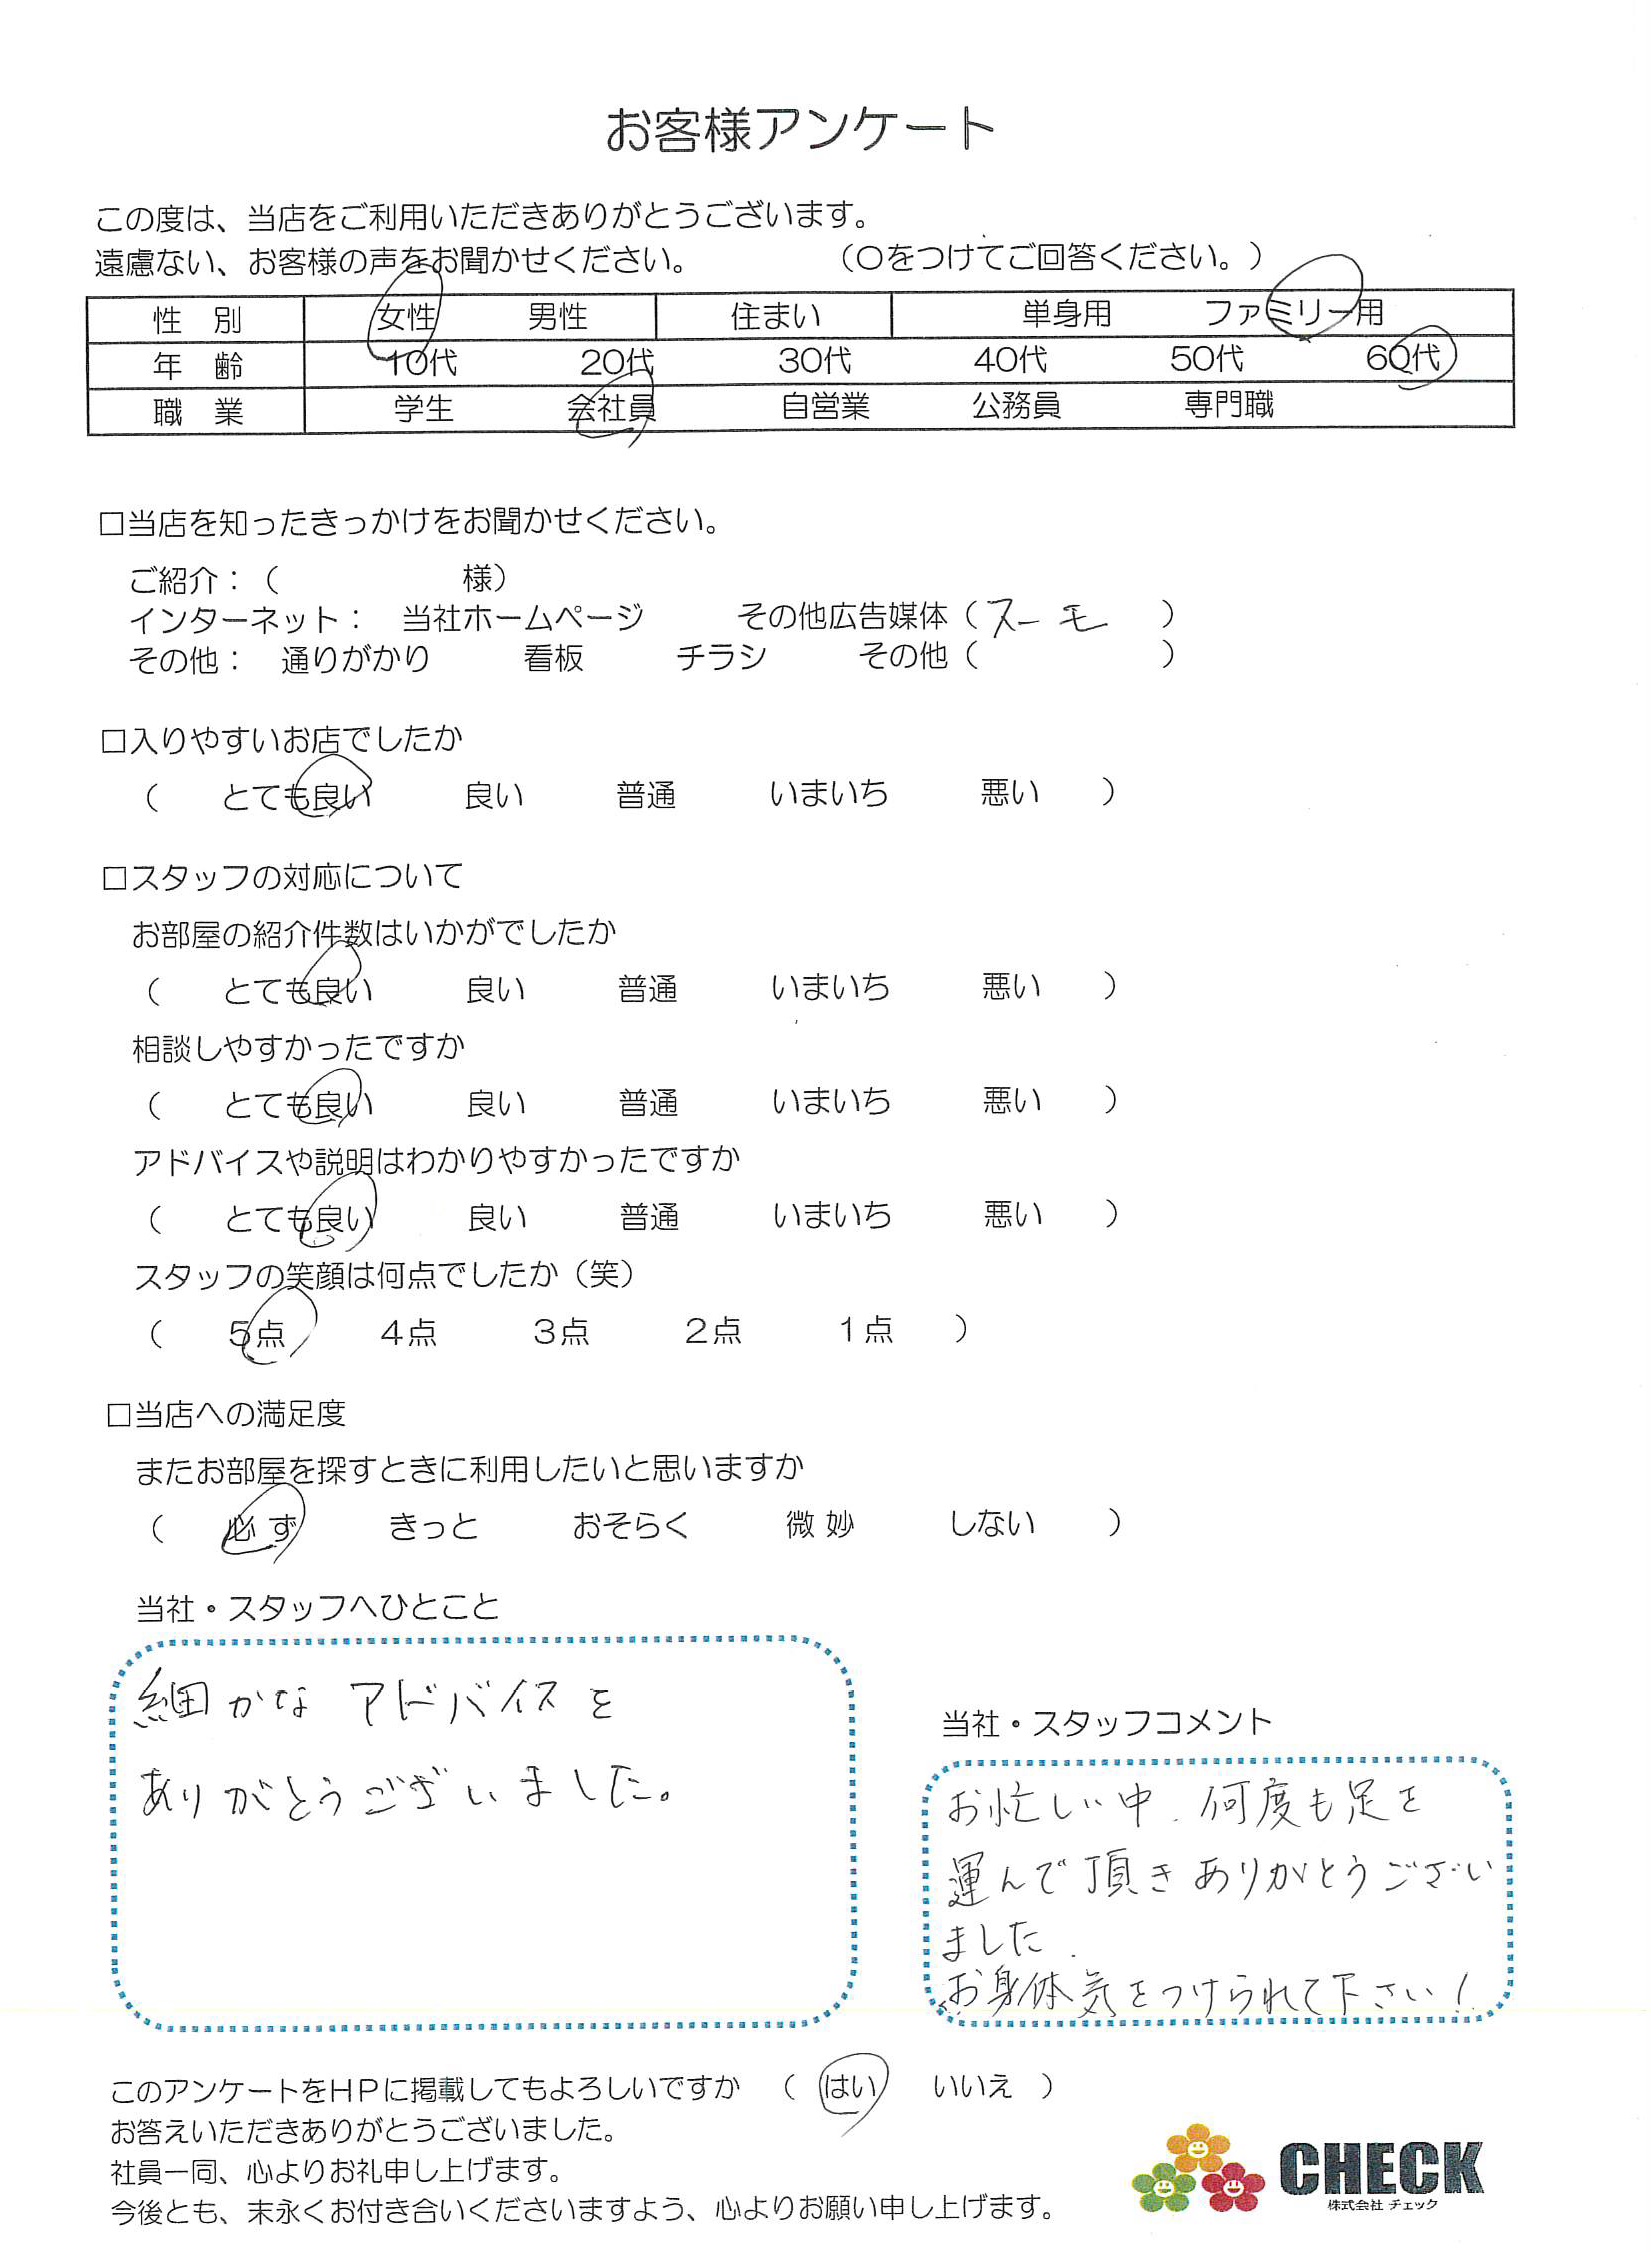 お客様アンケート
この度は、当店をご利用いただきありがとうございます。
遠慮ない、お客様の声をお聞かせください。 （○をつけてご回答ください。）
性 別 女性 男性 住まい 単身用 ファミリー用
年 齢 10代 20代 30代 40代 50代 60代
職 業 学生 会社員 自営業 公務員 専門職
□当店を知ったきっかけをお聞かせください。
ご紹介：（ 様）
インターネット： 当社ホームページ その他広告媒体（スーモ ）
その他： 通りがかり 看板 チラシ その他（ ）
□入りやすいお店でしたか
（ とても良い 良い 普通 いまいち 悪い ）
□スタッフの対応について
お部屋の紹介件数はいかがでしたか
（ とても良い 良い 普通 いまいち 悪い ）
相談しやすかったですか
（ とても良い 良い 普通 いまいち 悪い ）
アドバイスや説明はわかりやすかったですか
（ とても良い 良い 普通 いまいち 悪い ）
スタッフの笑顔は何点でしたか（笑）
（ 5点 4点 3点 2点 1点 ）
□当店への満足度
またお部屋を探すときに利用したいと思いますか
（ 必ず きっと おそらく 微妙 しない ）
当社・スタッフへひとこと
細かなアドバイスを
ありがとうございました。
当社・スタッフコメント
お忙しい中、何度も足を
運んで頂きありがとうござい
ました.
お身体気をつけられて下さい！
このアンケートをＨＰに掲載してもよろしいですか （ はい いいえ ）
お答えいただきありがとうございました。
社員一同、心よりお礼申し上げます。
今後とも、末永くお付き合いくださいますよう、心よりお願い申し上げます。
CHECK
株式会社 チェック